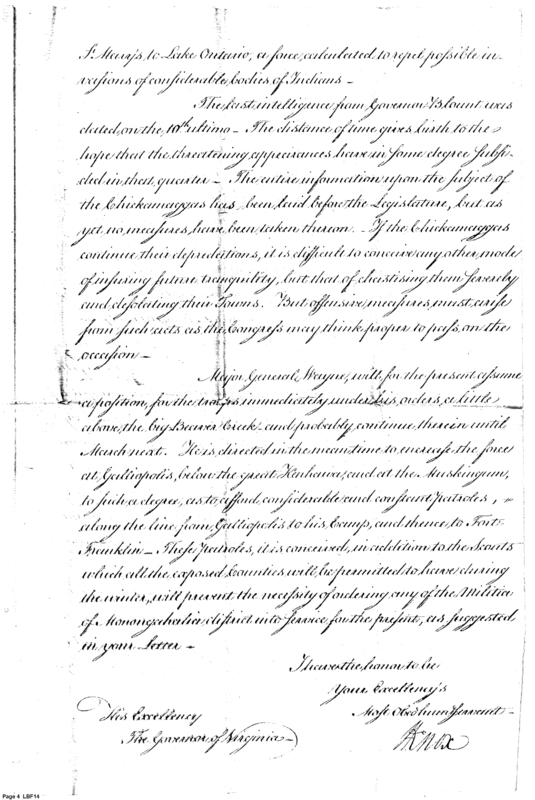 St Mary's, to Lake Ontario, a force, calculated to repel possible in-
vasions of considerable bodies of Indians –
The last intelligence from Governor Blount was
dated on the 10th ultimo – The distance of time gives birth to the
hope that the threatening appearances have in some degree subsi-
ded in that quarter – The entire information upon the subject of
the Chickamaggas has been laid before the Legislature, but as
yet no measures, have been taken thereon – If the Chickamaggas
continue their depredations, it is difficult to conceive any other mode
of insuring future tranquility, but that of chastising them severely
and desolating their Towns. But offensive measures must arise
from such acts as the Congress may think proper to pass, on the
occasion –
Major General Wayne, will for the present assume
a position, for the troops immediately under his orders, a little
above, the big Beaver Creek and probably continue therein until
March next. He is directed in the mean time to increase the force
at Galliopolis, below the great Kenhawa, and at the Muskingum,
to such a degree, as to afford, considerable and constant patroles,
along the line from Galliopolis, to his Camp, and thence, to Fort
Franklin – These patroles, it is conceived, in addition to the Scouts
which all the exposed Counties will be permitted to have during
the winter, will prevent the necessity of ordering any of the Militia
of Monongahalia district into service for the present, as suggested
in your Letter –
I have the honor to be
Your Excellency's
Most Obed hum Servant –
HKnox
His Excellency
The Governor of Virginia –
Page 4 LBF14